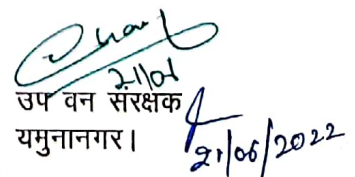 21/06
उप वन संरक्षक
यमुनानगर।
21/06/2022